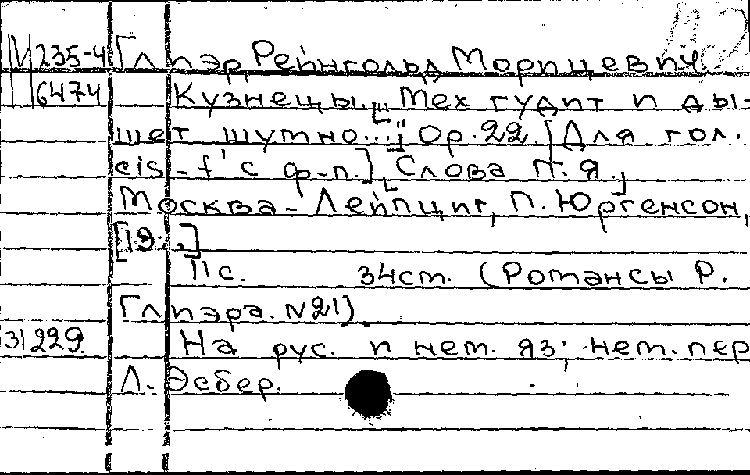 М 235-4 Глиэр, Рейнгольд Морицевич
6474 Кузнецы. ["Мех гудит и ды-
шет шумно..."] Ор. 22. [Для гол.
cis - f' с ф-п.], [Слова П.Я.]
Москва - Лейпциг, П. Юргенсон,
[19 .]
11с. 34см. (Романсы Р.
Глиэра. N21)
31229 На рус. и нем. яз; нем. пер
Л. Эсбер.